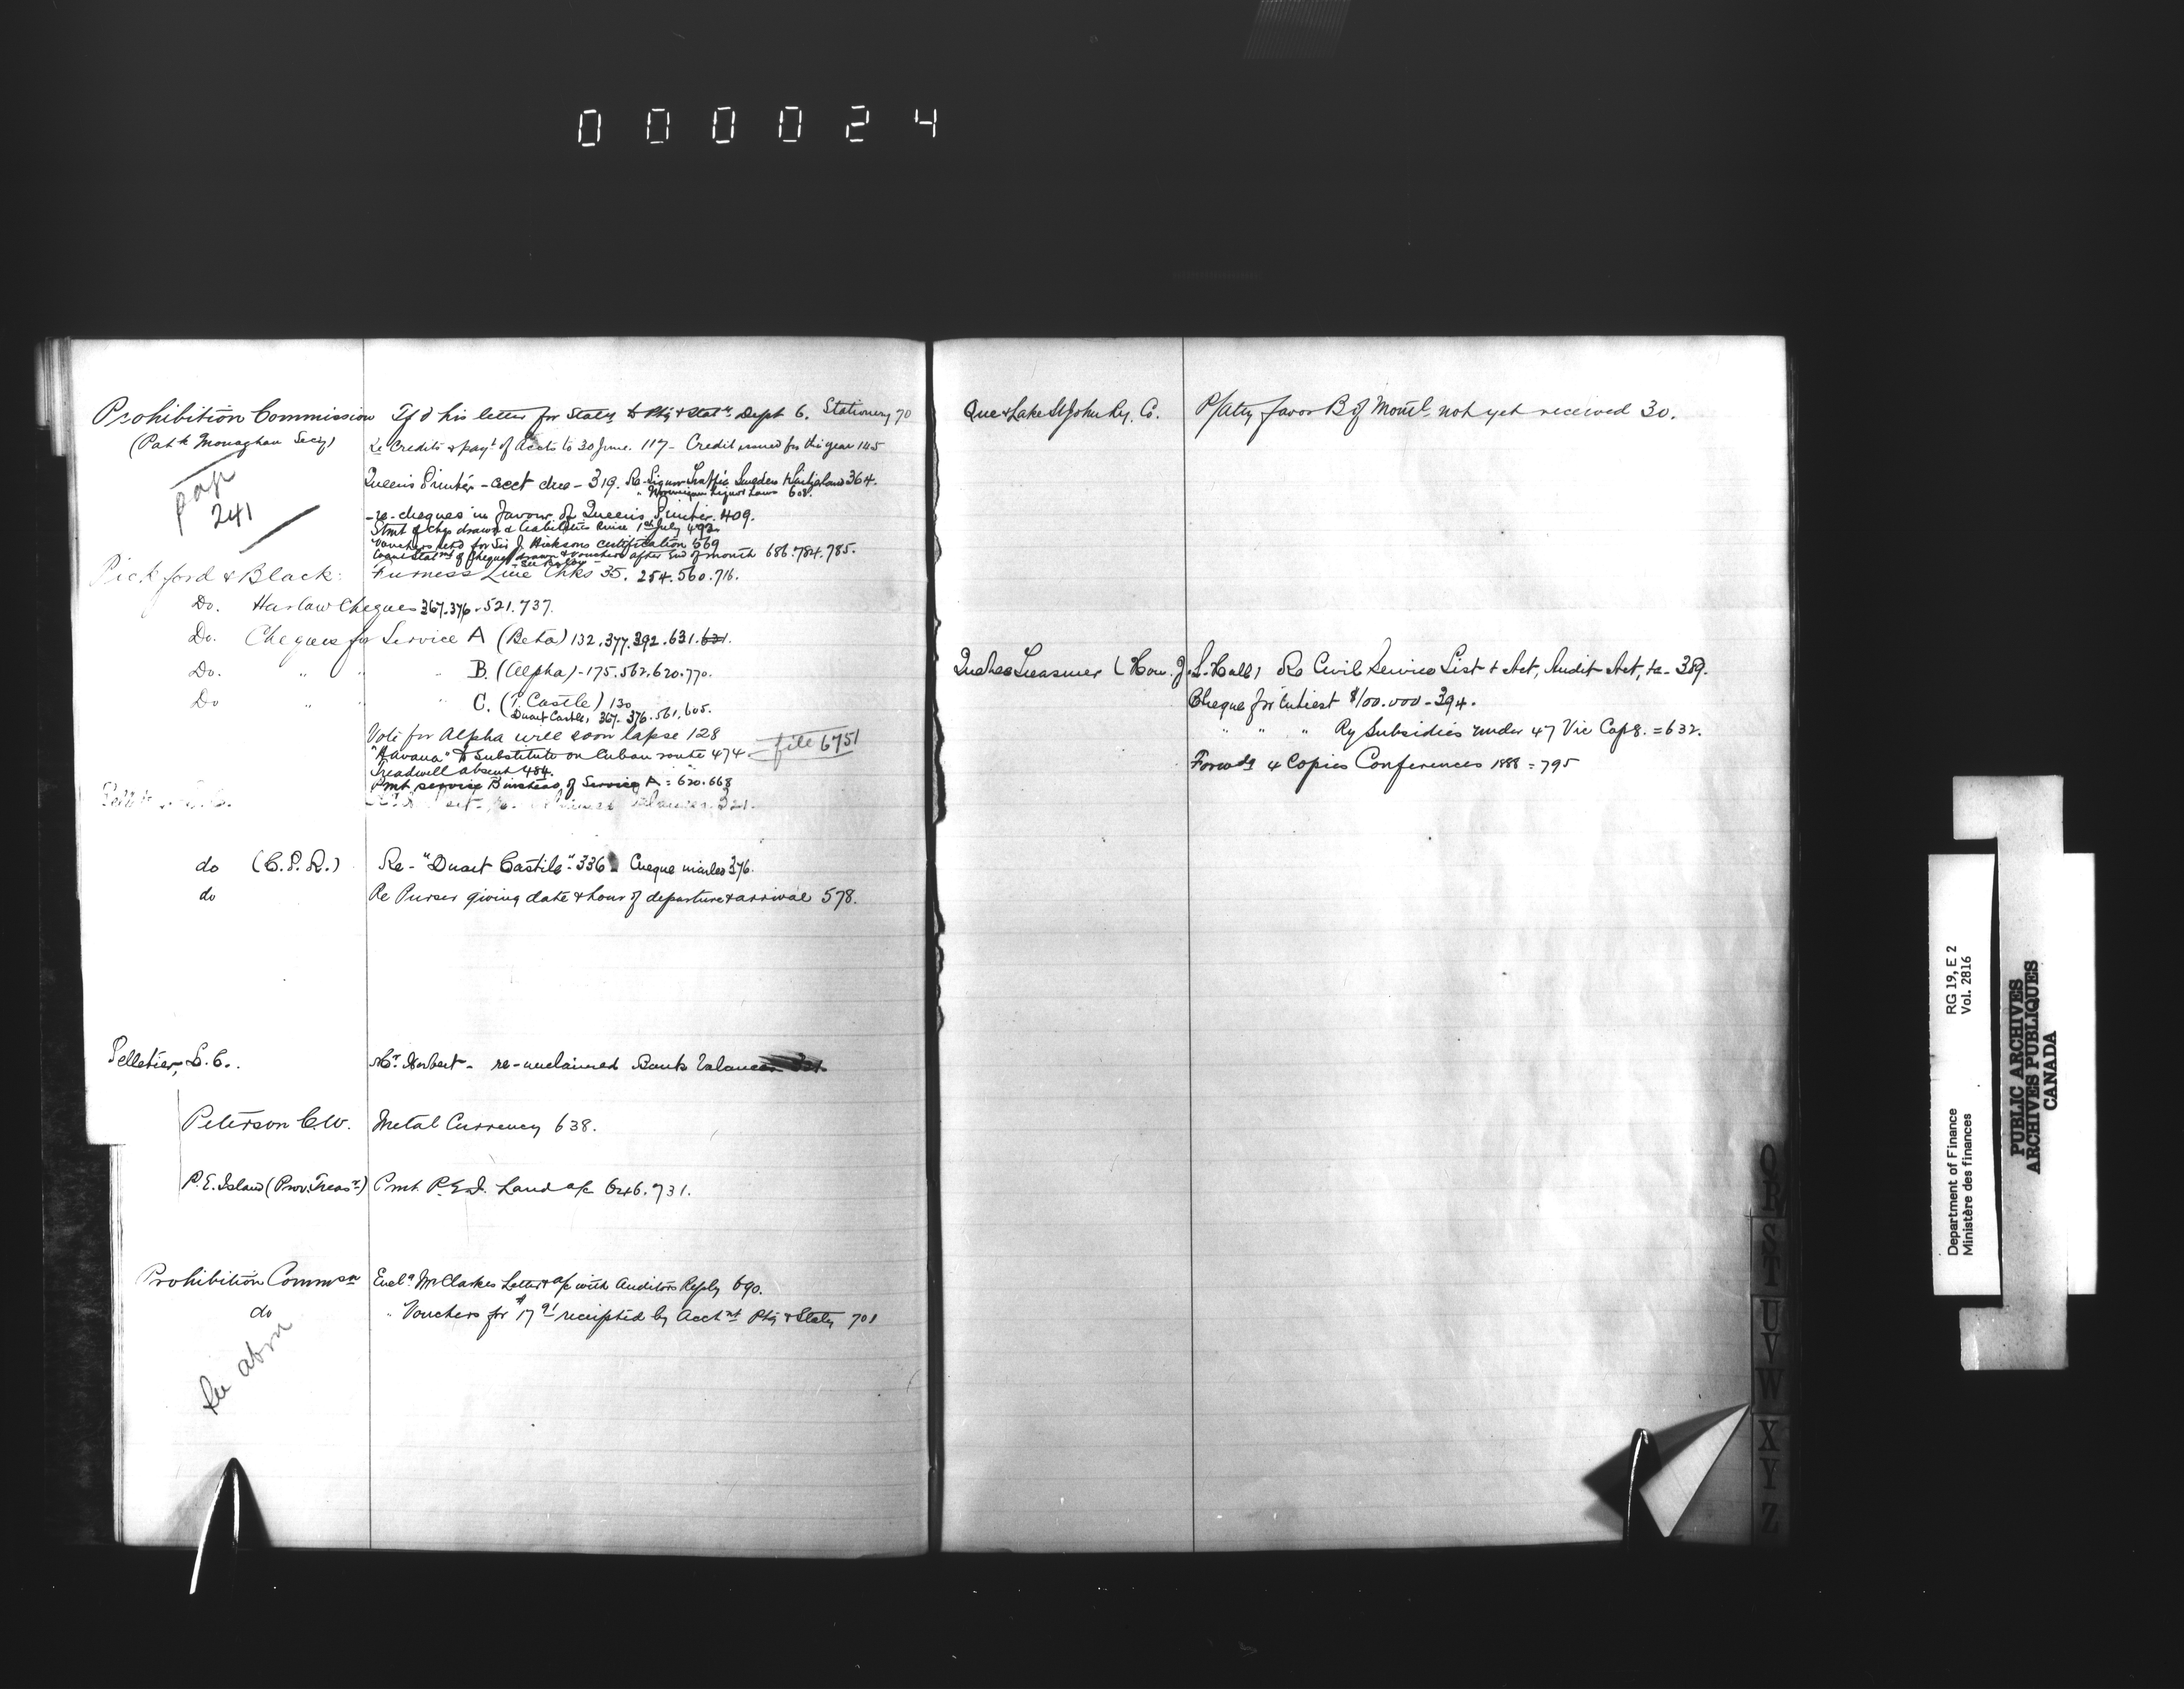 000024
Prohibition Commission Tf'd his letter for Staty to Ptg & Staty Dept 6. Stationery 70
(Patk Monaghan Secy) Re Credits & payt of Accts to 30 June. 117 - Credit issued for this year 145
Queen's Printer - acct due - 319. Re-Liquor Traffic Sweden & Switzerland 364.
" Norwegian Liquor Laws 608.
241
- re-cheques in favour of Queen's Printer. 409.
Stmt of chqs drawn & liabilities since 1st July 492
Vouchers retd for Sir J. Hicksons certification 569
of Cheques drawn & vouchers after End of month 686.784.785.
- See Below -
Pickford & Black: Furness Line Chks 35. 254.560.716.
Do. Harlaw Cheques 367.376.521.737.
Do. Cheques for Service A (Beta) 132.377.392.631.631.
Do. " " " B. (Alpha) - 175.562.620.770.
Do " " " C. (T. Castle) 130
Duart Castle, 367.376.561.605.
Vote for Alpha will soon lapse 128
"Havana" to substitute on Cuban route 474 - file 6751
Treadwell absent 484.
Pmt. service of Service A = 620.668
do (C.P.R.) Re- "Duart Castle"- 336. Cheque mailed 376.
do Re Purser giving date & hour of departure & arrival 578.
Pelletier, L.C. Mr. Herbert - re-unclaimed Bank balances 321.
Peterson C.W. Metal Currency 638.
P.E. Island (Prov. Treasr.) Pmt. P.E.I. Land a/c 646.731.
Prohibition Commsn Encl. Mr Clarkes Letter & a/c with Auditors Reply 690.
do " Vouchers for $17 91 receipted by Acctnt Ptg & Staty 701
See above
Que & Lake St John Ry. Co. P/atty favor B of Montl. not yet received 30.
Quebec Treasurer (Hon. J. S. Hall) Re Civil Service List & Act, Audit Act, &c - 389.
Cheque for interest $100.000 - 394.
" " " Ry Subsidies under 47 Vic Cap 8. = 632.
Forwdg 4 Copies Conferences 1888 = 795
Q
R
S
T
U
V
W
X
Y
Z
Department of Finance RG 19, E 2
Ministère des finances Vol. 2816
PUBLIC ARCHIVES
ARCHIVES PUBLIQUES
CANADA